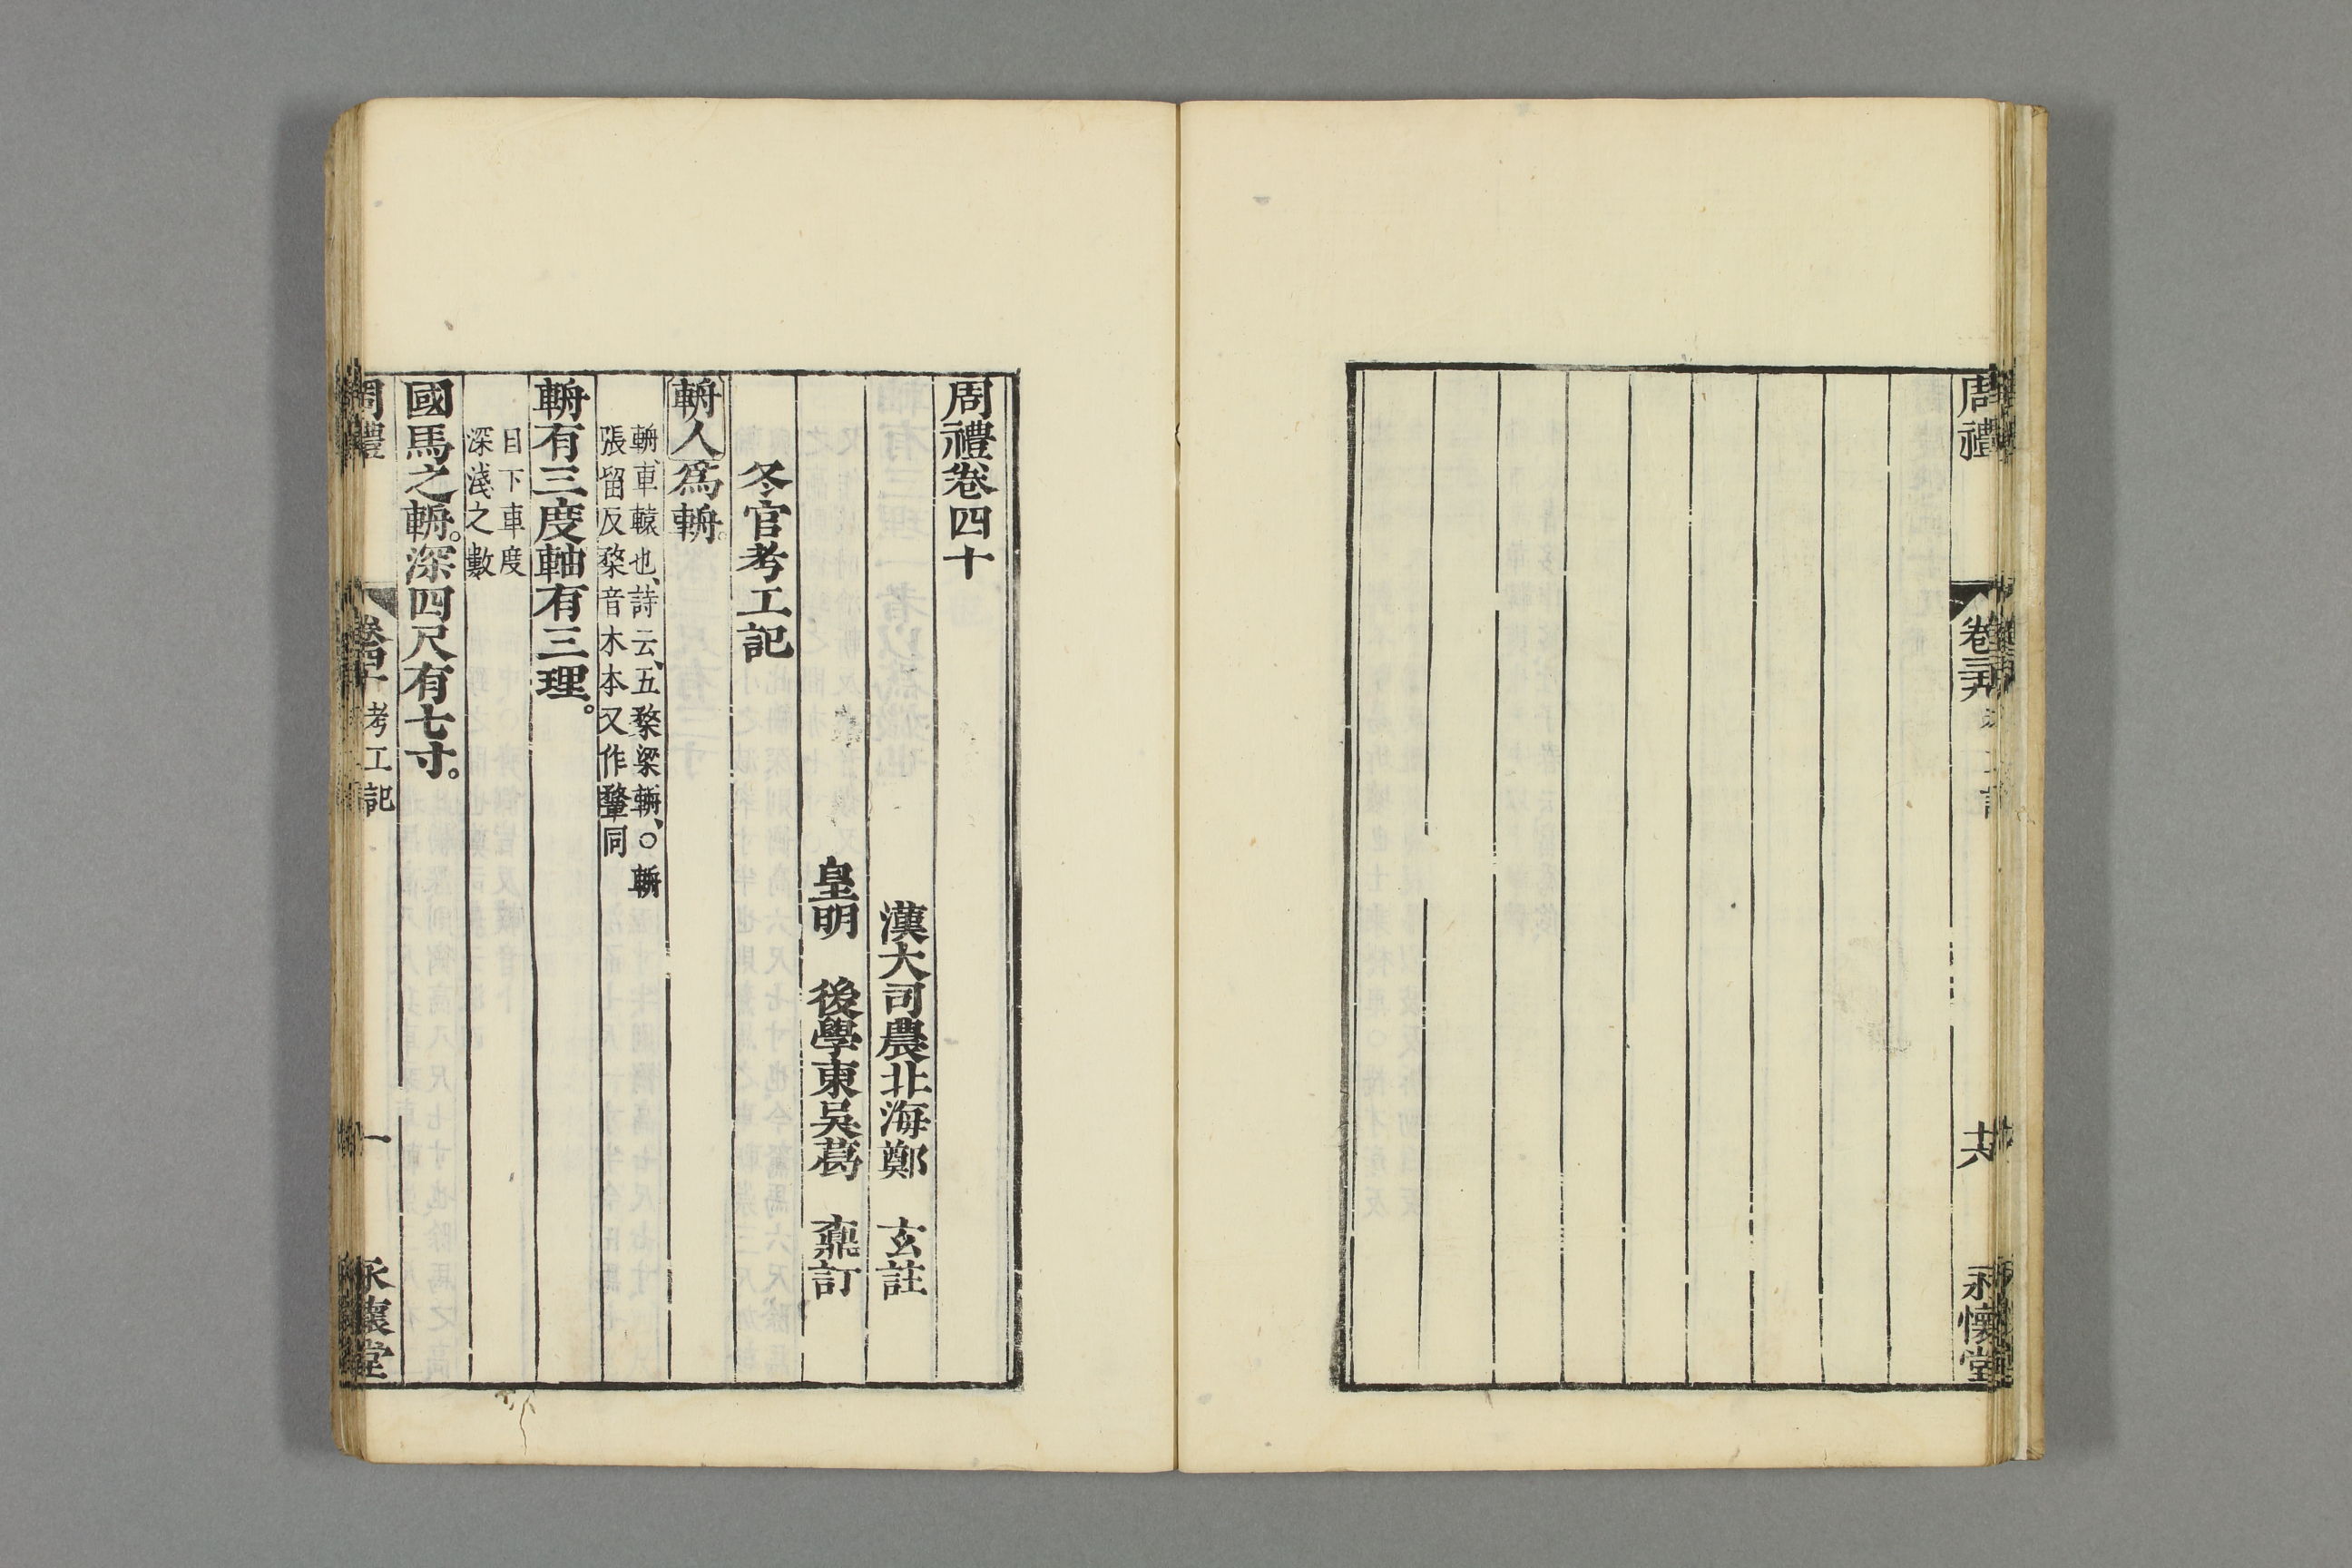 周禮
卷三九
十六
永懷堂
周禮卷四十
漢大司農北海鄭　玄註
皇明　後學東吳葛　鼒訂
冬官考工記
輈人爲輈。
輈、車轅也、詩云、五楘梁輈、○輈
張留反楘音木本又作鞪同
輈有三度軸有三理。
目下車度
深淺之數
國馬之輈。深四尺有七寸。
周禮
卷四十
考工記
一
永懷堂